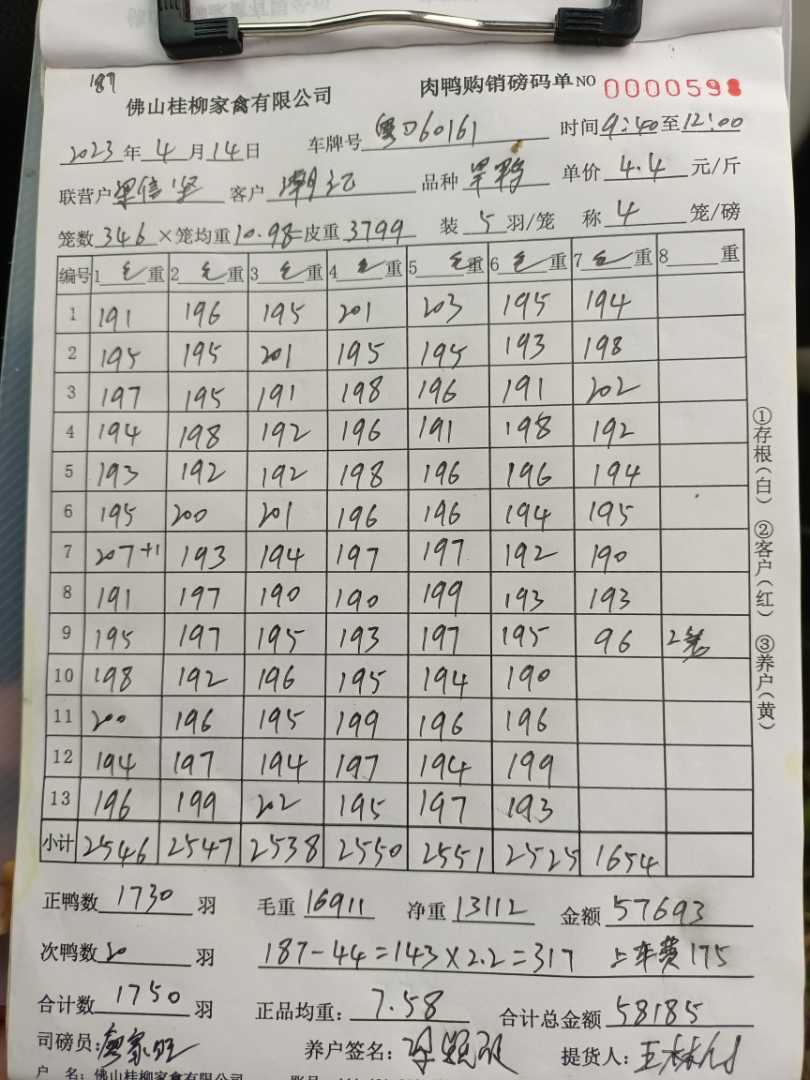 187
佛山桂柳家禽有限公司 肉鸭购销磅码单 NO 0000598
2023年4月14日 车牌号 粤J60161 时间9:40至12:00
联营户 梁信坚 客户 潮记 品种 旱鸭 单价 4.4 元/斤
笼数 346 ×笼均重 10.98=皮重 3799 装 5 羽/笼 称 4 笼/磅
编号 1 毛重 2 毛重 3 毛重 4 毛重 5 毛重 6 毛重 7 毛重 8 重
1 191 196 195 201 203 195 194
2 195 195 201 195 195 193 198
3 197 195 191 198 196 191 202
4 194 198 192 196 191 198 192
5 193 192 192 198 196 196 194
6 195 200 201 196 196 194 195
7 207+1 193 194 197 197 192 190
8 191 197 190 190 199 193 193
9 195 197 195 193 197 195 96 2笼
10 198 192 196 195 194 190
11 200 196 195 199 196 196
12 194 197 194 197 194 199
13 196 199 202 195 197 193
小计 2546 2547 2538 2550 2551 2525 1654
正鸭数 1730 羽 毛重 16911 净重 13112 金额 57693
次鸭数 20 羽 187-44=143×2.2=317 上车费175
合计数 1750 羽 正品均重: 7.58 合计总金额 58185
司磅员: 养户签名: 提货人:
户 名: 佛山桂柳家禽有限公司
①存根(白) ②客户(红) ③养户(黄)